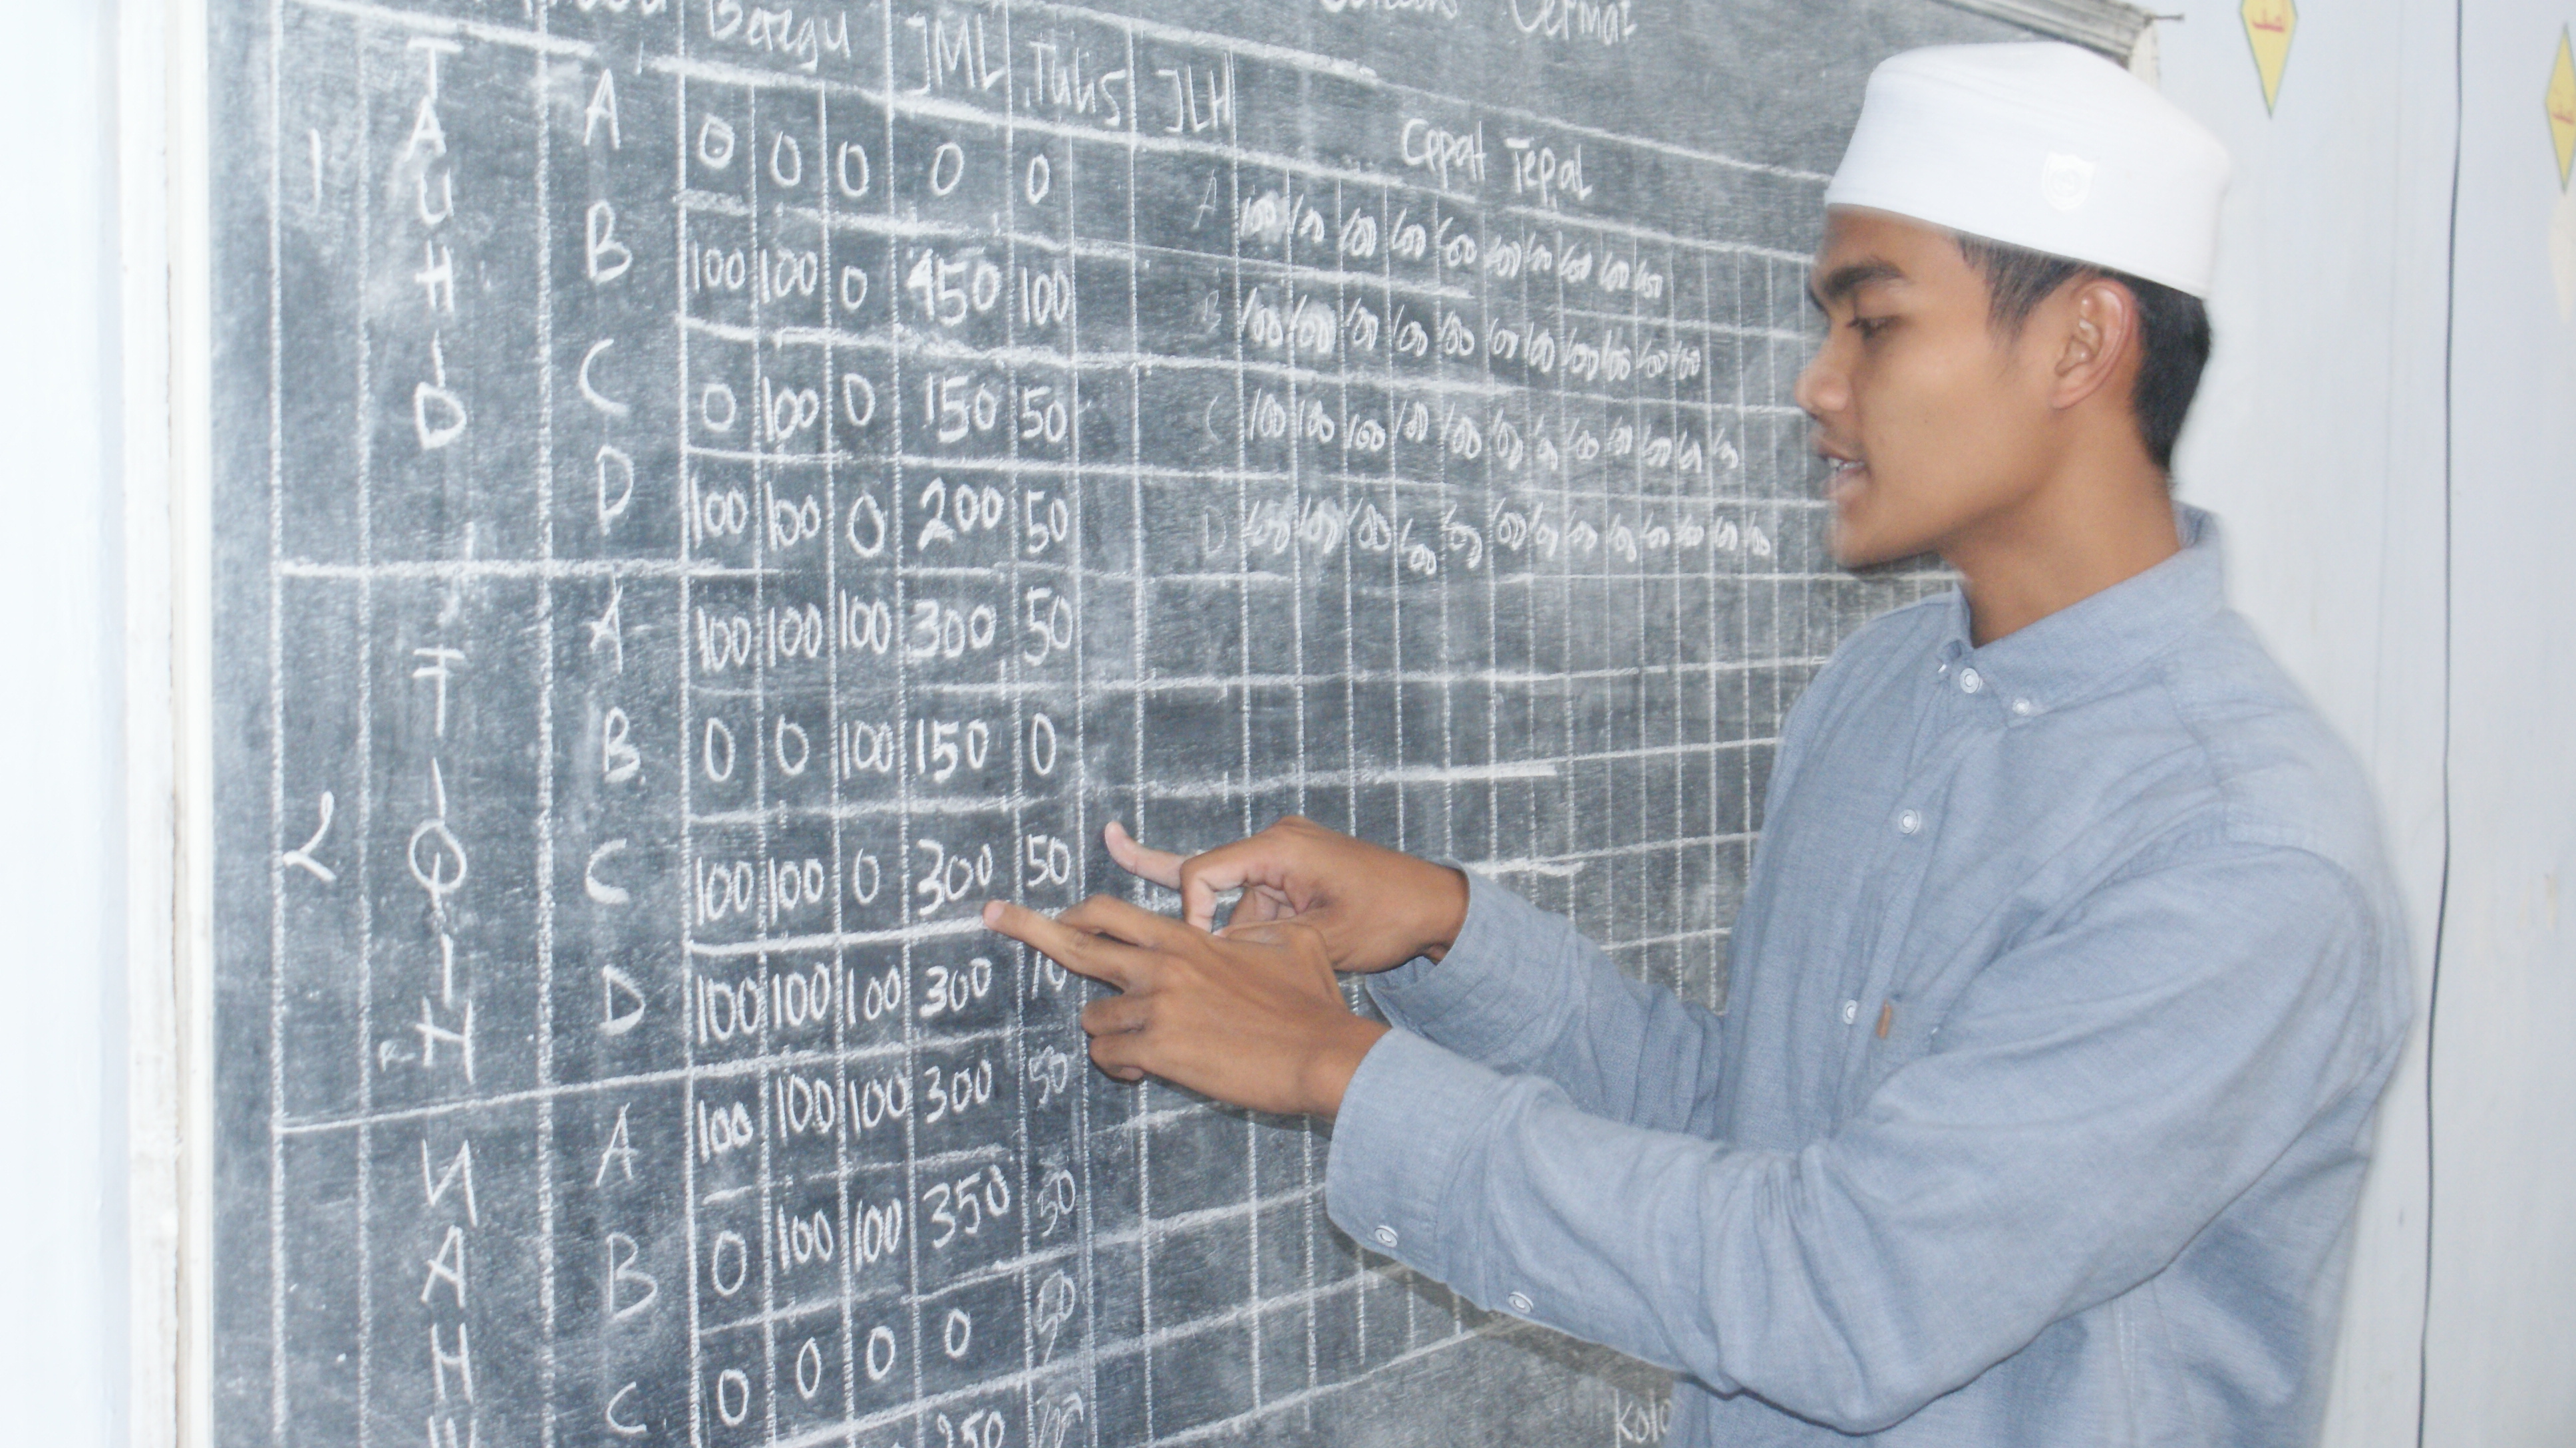 Beregu JML Tulis JLH
Cermat
Cepat Tepat
1 TAUHID A 0 0 0 0 0
B 100 100 0 450 100
C 0 100 0 150 50
D 100 100 0 200 50
A 100 100 100 100 100 100 100 100 100 100
B 100 100 100 100 100 100 100 100 100 100 100
C 100 100 100 100 100 100 100 100 100 100 100 100
D 100 100 100 100 100 100 100 100 100 100 100 100
2 FIQIH A 100 100 100 300 50
B 0 0 100 150 0
C 100 100 0 300 50
D 100 100 100 300
NAH A 100 100 100 300 50
B 0 100 100 350 50
C 0 0 0 0 50